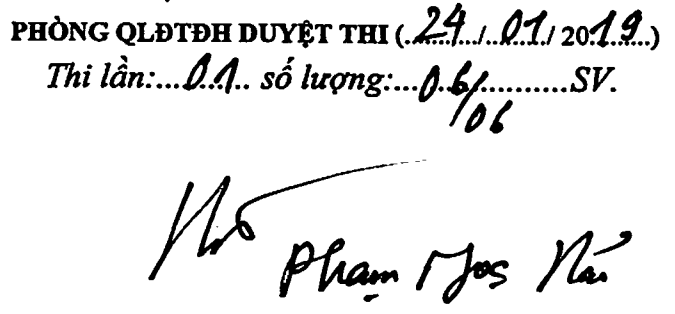 PHÒNG QLĐTĐH DUYỆT THI (..24../..01../ 2019...)
Thi lần:...01.. số lượng:...06/06...........SV.
Phạm